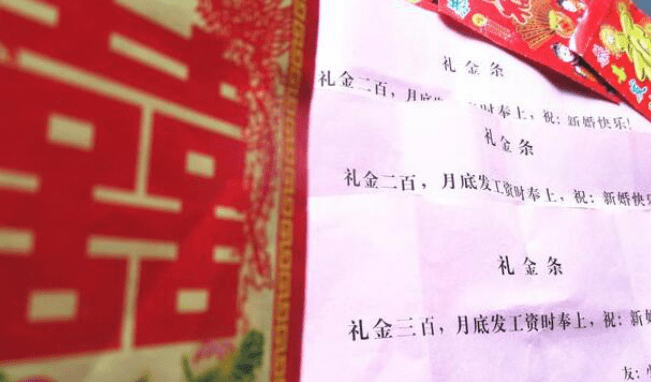 囍
礼金条
礼金二百，月底发工资时奉上，祝：新婚快乐！
礼金条
礼金二百，月底发工资时奉上，祝：新婚快乐
礼金条
礼金三百，月底发工资时奉上，祝：新婚
友：